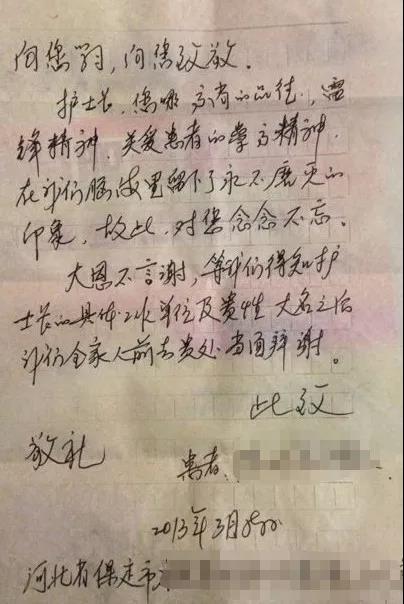 向您学习,向您致敬。
护士长,您那高尚的品德,雷
锋精神,关爱患者的崇高精神,
在我们脑海里留下了永不磨灭的
印象,故此,对您念念不忘。
大恩不言谢,等我们得知护
士长的具体工作单位及贵姓大名之后
我们全家人前去贵处当面拜谢。
此致
敬礼
患者:
2013年3月
河北省保定市